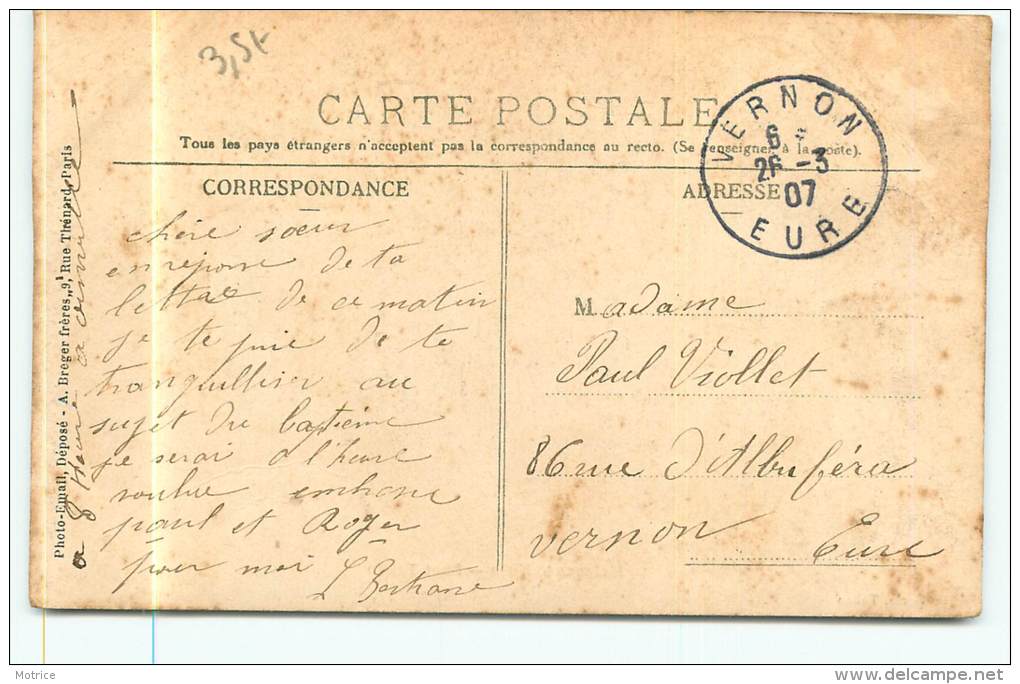 3,5t
CARTE POSTALE
Tous les pays étrangers n'acceptent pas la correspondance au recto. (Se renseigner à la poste).
VERNON
6
26 -3
07
EURE
CORRESPONDANCE
chère sœur
en reponse de ta
lettre de ce matin
je te prie de te
tranquilliser au
sujet du baptême
je serai a l'heure
voulue embrasse
paul et Roger
pour moi
L
a 8 heure
Photo-Email, Déposé - A. Breger frères, 9, Rue Thénard, Paris
ADRESSE
Madame
Paul Viollet
86 rue d'Albuféra
vernon Eure
Motrice
delcampe.net